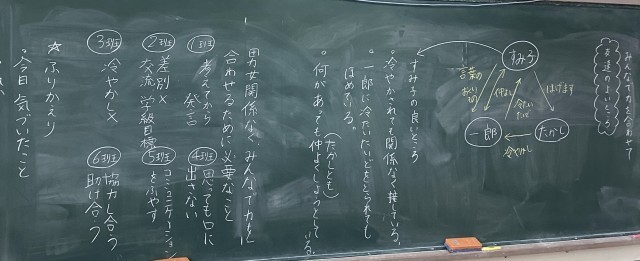 みんなで力を合わせて
友達のよいところ
すみ子
一郎
たかし
言葉の
おくりもの
仲よし
冷たい
たいど
はげます
冷やかし
すみ子の良いところ
・冷やかされても関係なく接している。
・一郎に冷たいたいどをとられても
ほめている。
(たかしとも)
・何があっても仲よくしようとしている。
男女関係なく、みんなで力を
合わせるために必要なこと
①班
考えてから
発言
②班
差別×
交流 学級目標
③班
冷やかし×
④班
思っても口に
出さない
⑤班
コミュニケーション
をふやす
⑥班
協力し合う
助け合う
☆ふりかえり
・今日気づいたこと